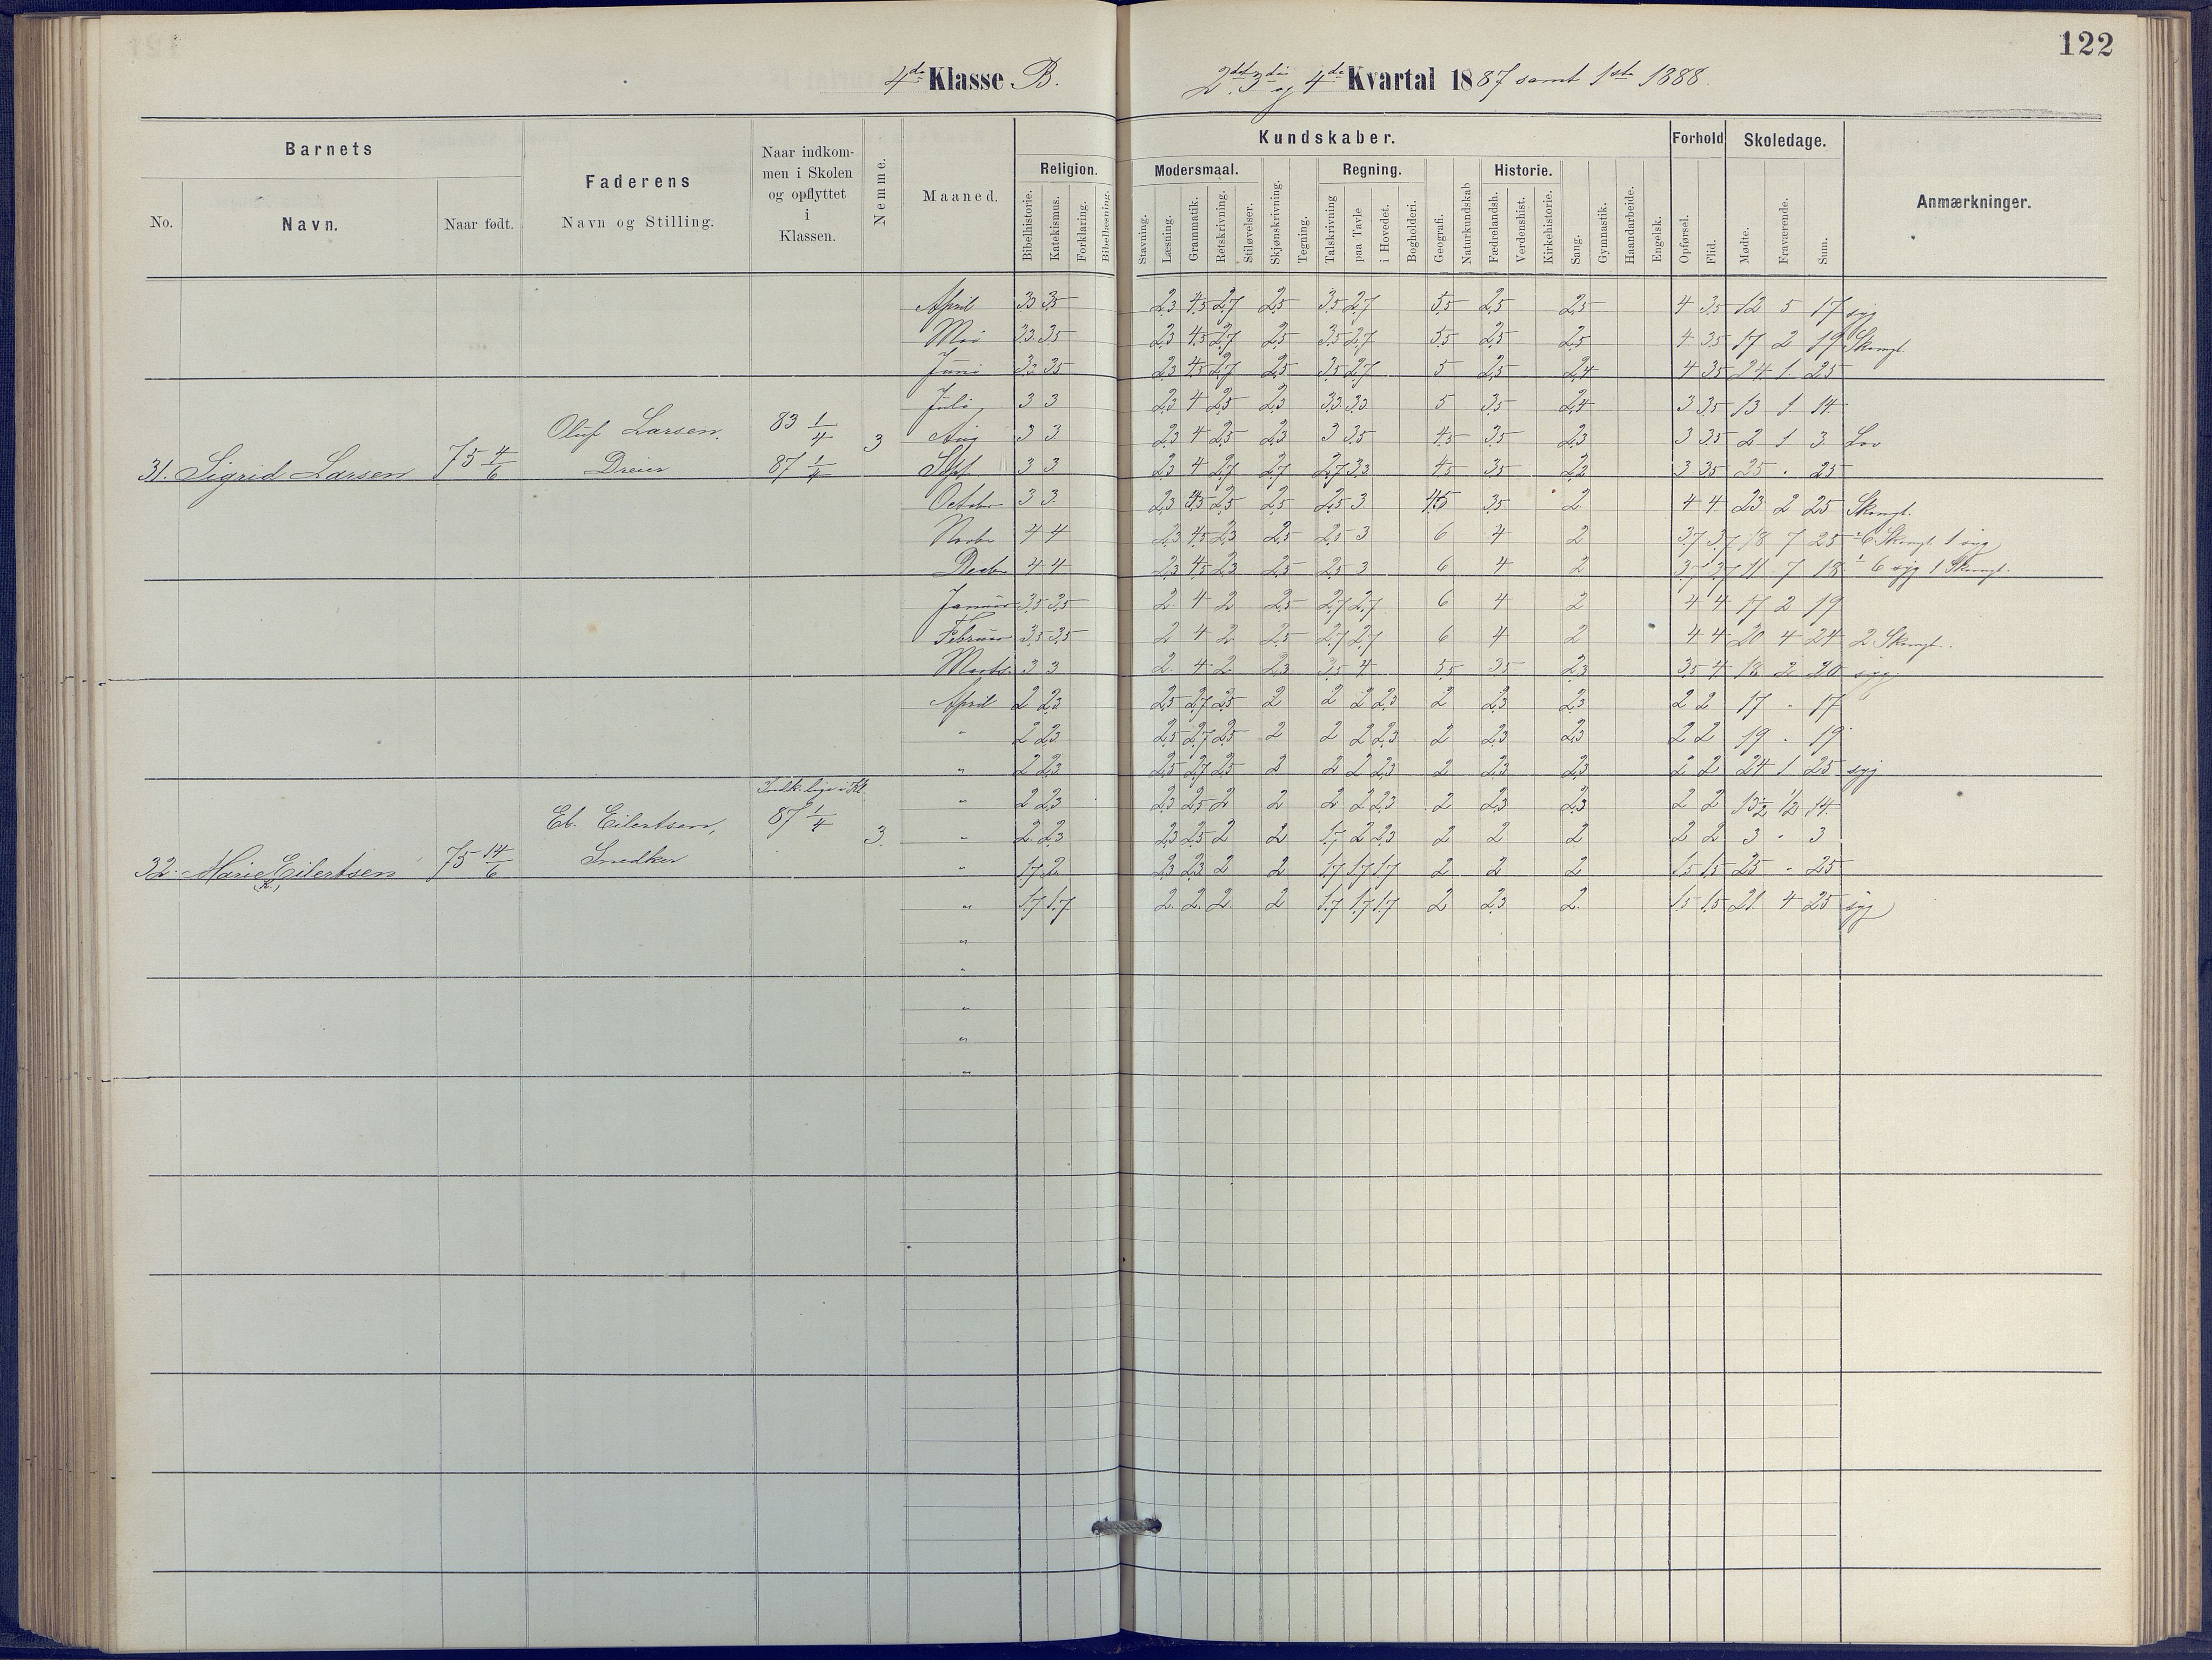 122
4de Klasse B.
2det 3die og 4de Kvartal 1887 samt 1ste 1888.
Barnets
No.
Navn.
Naar født.
Faderens
Navn og Stilling.
Naar indkom-
men i Skolen
og opflyttet
i
Klassen.
Nemme.
Maaned.
Kundskaber.
Religion.
Bibelhistorie.
Katekismus.
Forklaring.
Bibellæsning.
Modersmaal.
Stavning.
Læsning.
Grammatik.
Retskrivning.
Stiløvelser.
Skjønskrivning.
Tegning.
Regning.
Talskrivning
paa Tavle
i Hovedet.
Bogholderi.
Geografi.
Naturkundskab
Historie.
Fædrelandsh.
Verdenshist.
Kirkehistorie.
Sang.
Gymnastik.
Haandarbeide.
Engelsk.
Forhold
Opførsel.
Flid.
Skoledage.
Mødte.
Fraværende.
Sum.
Anmærkninger.
April 3,3 3,5 2,3 4,5 2,7 2,5 3,5 2,7 5,5 2,5 2,5 4 3,5 12 5 17 syg
Mai 3,3 3,5 2,3 4,5 2,7 2,5 3,5 2,7 5,5 2,5 2,5 4 3,5 17 2 19 Skomgl.
Juni 3,3 3,5 2,3 4,5 2,7 2,5 3,5 2,7 5 2,5 2,4 4 3,5 24 1 25
Juli 3 3 2,3 4 2,5 2,3 3,3 3,3 5 3,5 2,4 3 3,5 13 1 14
Oluf Larsen, 83 1/4 3 Aug 3 3 2,3 4 2,5 2,3 3 3,5 4,5 3,5 2,3 3 3,5 2 1 3 Lov
31. Sigrid Larsen 75 4/6 Dreier 87 1/4 Sept. 3 3 2,3 4 2,7 2,7 2,7 3,3 4,5 3,5 2,3 3 3,5 25 - 25
October 3 3 2,3 4,5 2,5 2,5 2,5 3 4,5 3,5 2 4 4 23 2 25 Skomgl.
Novbr 4 4 2,3 4,5 2,3 2,5 2,5 3 6 4 2 3,7 3,7 18 7 25 6 Skomgl. 1 syg
Decbr 4 4 2,3 4,5 2,3 2,5 2,5 3 6 4 2 3,7 3,7 11 7 18 6 syg 1 Skomgl.
Januar 3,5 3,5 2 4 2 2,5 2,7 2,7 6 4 2 4 4 17 2 19
Februar 3,5 3,5 2 4 2 2,5 2,7 2,7 6 4 2 4 4 20 4 24 2 Skomgl.
Marts 3 3 2 4 2 2,3 3,5 4 5,5 3,5 2,3 3,5 4 18 2 20 syg
April 2 2,3 2,5 2,7 2,5 2 2 2 2,3 2 2,3 2,3 2 2 17 - 17
" 2 2,3 2,5 2,7 2,5 2 2 2 2,3 2 2,3 2,3 2 2 19 - 19
" 2 2,3 2,5 2,7 2,5 2 2 2 2,3 2 2,3 2,3 2 2 24 1 25 syg
Indk. lige i Kl.
" 2 2,3 2,3 2,5 2 2 2 2 2,3 2 2,3 2,3 2 2 13½ ½ 14
Eb. Eilertsen, 87 1/4 3. " 2 2,3 2,3 2,5 2 2 1,7 2 2,3 2 2 2 2 2 3 - 3
32. Marie (K.) Eilertsen 75 14/6 Snedker " 1,7 2 2,3 2,3 2 2 1,7 1,7 1,7 2 2 2 1,5 1,5 25 - 25
" 1,7 1,7 2 2 2 2 1,7 1,7 1,7 2 2,3 2 1,5 1,5 21 4 25 syg
"
"
"
"
"